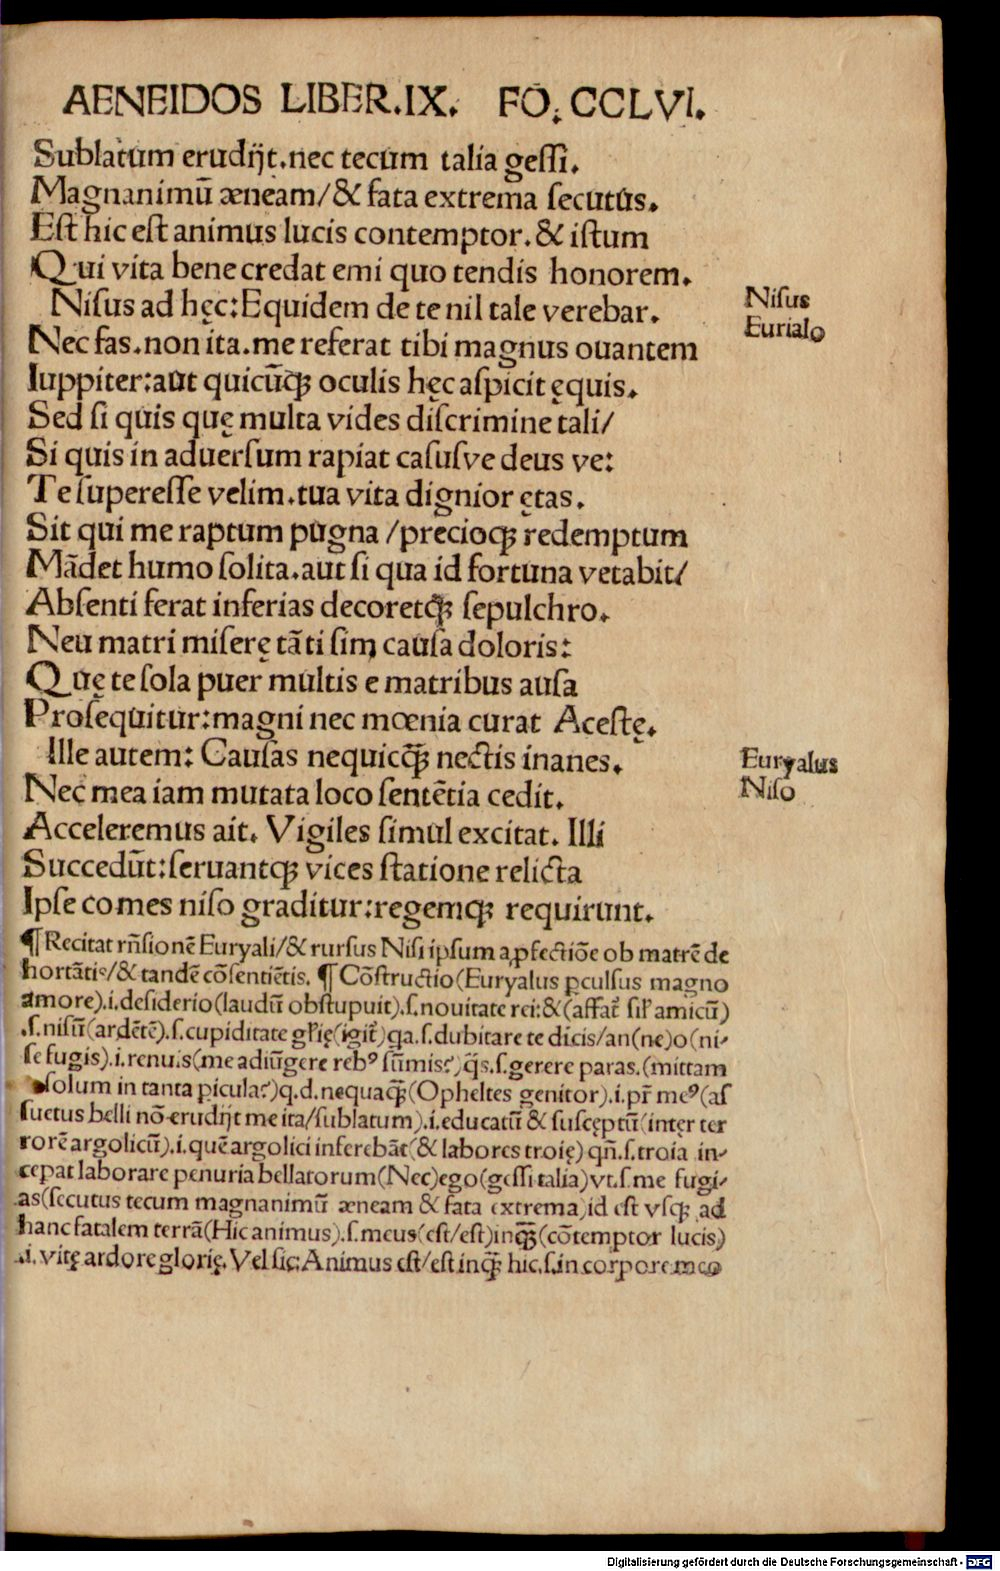 AENEIDOS LIBER.IX. FO. CCLVI.
Sublatum erudijt.nec tecum talia geſſi.
Magnanimū æneam/& fata extrema ſecutus.
Eſt hic eſt animus lucis contemptor.& iſtum
Qui vita bene credat emi quo tendis honorem.
Niſus ad hęc:Equidem de te nil tale verebar.
Niſus
Eurialo
Nec fas.non ita.me referat tibi magnus ouantem
Iuppiter:aut quicūqꝫ oculis hęc aſpicit ęquis.
Sed ſi quis quę multa vides diſcrimine tali/
Si quis in aduerſum rapiat caſuſve deus ve:
Te ſupereſſe velim.tua vita dignior ętas.
Sit qui me raptum pugna /precioqꝫ redemptum
Mādet humo ſolita.aut ſi qua id fortuna vetabit/
Abſenti ferat inferias decoretqꝫ ſepulchro.
Neu matri miſerę tāti ſim cauſa doloris:
Quę te ſola puer multis e matribus auſa
Proſequitur:magni nec mœnia curat Aceſtę.
Ille autem: Cauſas nequicq̄ꝫ nectis inanes.
Euryalus
Niſo
Nec mea iam mutata loco ſentētia cedit.
Acceleremus ait. Vigiles ſimul excitat. Illi
Succedūt:ſeruantqꝫ vices ſtatione relicta
Ipſe comes niſo graditur:regemqꝫ requirunt.
¶Recitat rn̄ſionē Euryali/& rurſus Niſi ipſum a ꝓfectiōe ob matrē de
hortātis/& tandē cōſentiētis. ¶ Cōſtructio(Euryalus ꝑculſus magno
amore).i.deſiderio(laudū obſtupuit).ſ.nouitate rei:&(affat̄ ſil̄ amicū)
.ſ.niſū(ardētē).ſ.cupiditate gl̄ię(igit̄) qa.ſ.dubitare te dicis/an(ne)o(ni-
ſe fugis).i.renuis(me adiūgere rebꝰ ſūmis?)q̄s.ſ.gerere paras.(mittam
ſolum in tanta ꝑicula?)q.d.nequaq̄ꝫ(Opheltes genitor).i.pr̄ meꝰ(aſ
ſuetus belli nō erudijt me ita/ſublatum).i.educatū & ſuſcęptū(intęr ter
rorē argolicū).i.quē argolici inferebāt(& labores troię) qn̄.ſ.troia in-
cepat laborare penuria bellatorum(Nec)ego(geſſi talia)vt.ſ.me fugi-
as(ſecutus tecum magnanimū æneam & fata extrema)id eſt vſqꝫ ad
hanc fatalem terrā(Hic animus).ſ.meus(eſt/eſt)inq̄ꝫ(cōtemptor lucis)
.i. vitę ardore glorię. Vel ſic: Animus eſt/eſt inq̄ꝫ hic.ſ.in corpore meo
Digitalisierung gefördert durch die Deutsche Forschungsgemeinschaft - DFG